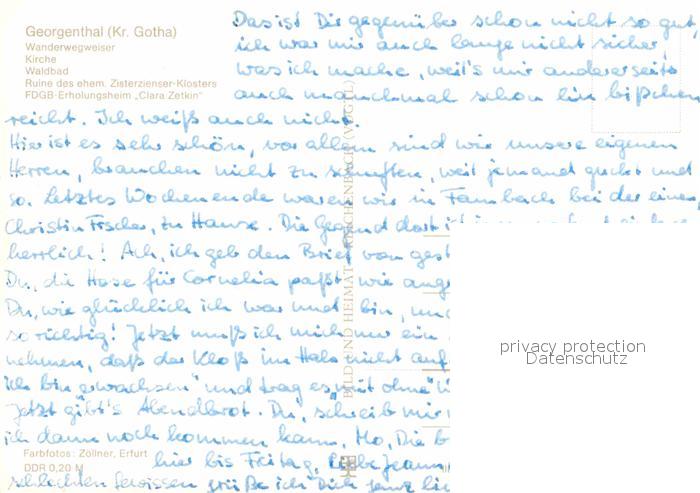 Georgenthal (Kr. Gotha)
Wanderwegweiser
Kirche
Waldbad
Ruine des ehem. Zisterzienser-Klosters
FDGB-Erholungsheim „Clara Zetkin“
Das ist Dir gegenüber schon nicht so gut,
ich war mir auch lange nicht sicher,
was ich mache, weil's mir andererseits
auch manchmal schon ein bißchen
reicht. Ich weiß auch nicht.
Hier ist es sehr schön, vor allem sind wir unsere eigenen
Herren, brauchen nicht zu schuften, weil jemand guckt und
so. Letztes Wochenende waren wir in Fambach bei der einen,
Christin Fischer, zu Hause. Die Gegend dort ist
herrlich! Ach, ich geb den Brief von gest
Du, die Hose für Cornelia paßt wie ange
Du, wie glücklich ich war und bin, und
so richtig! Jetzt muß ich mich nur ein
nehmen, daß der Kloß im Hals nicht auf
ich bin „erwachsen“ und trag es mit ohne
Jetzt gibt's Abendbrot. Du, schreib mir
ich dann noch kommen kann. Mo, Die
hier bis Freitag.
schlechten Gewissen grüße ich Dich ganz
Farbfotos: Zöllner, Erfurt
DDR 0,20 M
BILD UND HEIMAT REICHENBACH (VOGTL)
privacy protection
Datenschutz